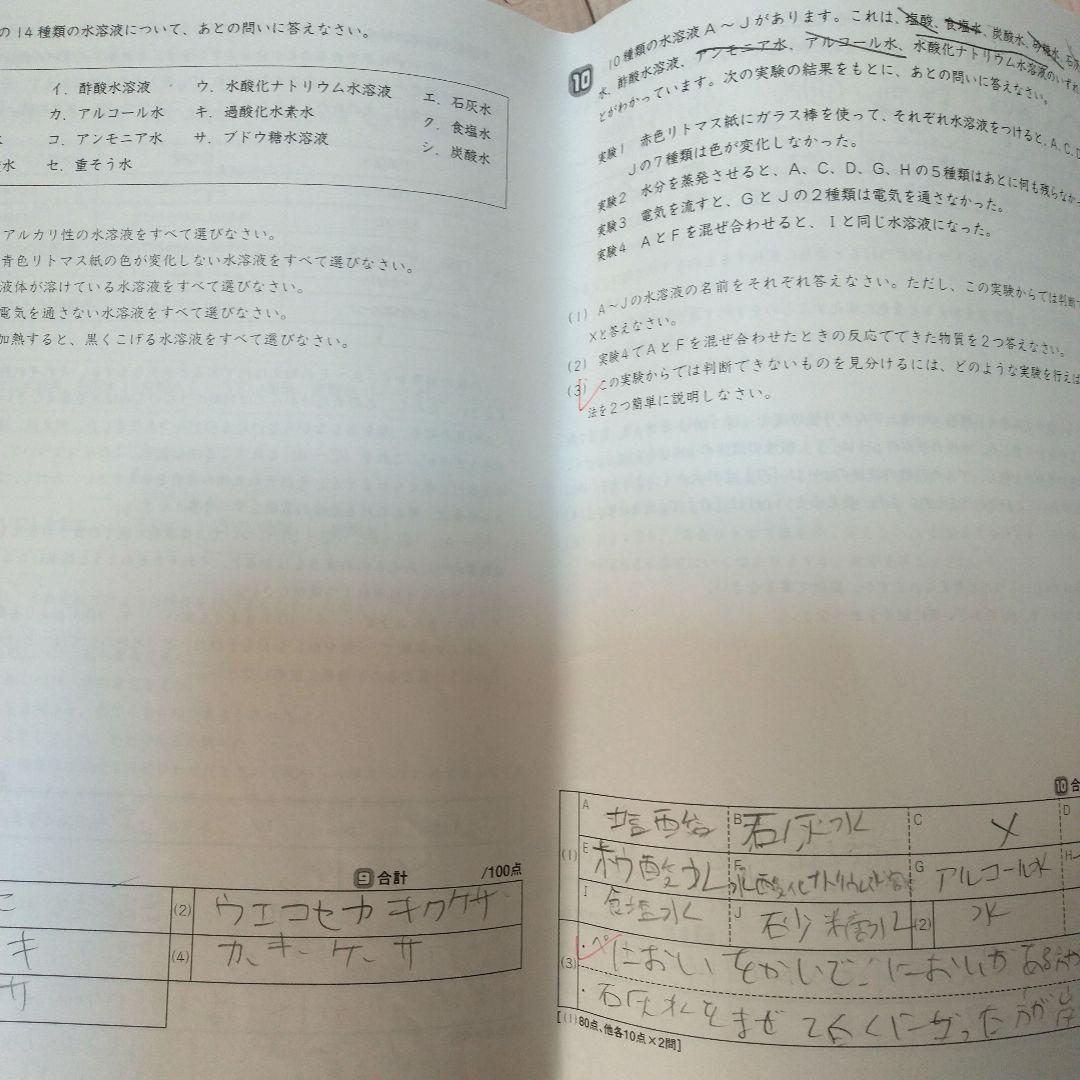 の14種類の水溶液について、あとの問いに答えなさい。
イ．酢酸水溶液　ウ．水酸化ナトリウム水溶液　エ．石灰水
カ．アルコール水　キ．過酸化水素水　ク．食塩水
コ．アンモニア水　サ．ブドウ糖水溶液　シ．炭酸水
水　セ．重そう水
アルカリ性の水溶液をすべて選びなさい。
青色リトマス紙の色が変化しない水溶液をすべて選びなさい。
液体が溶けている水溶液をすべて選びなさい。
電気を通さない水溶液をすべて選びなさい。
加熱すると、黒くこげる水溶液をすべて選びなさい。
9 合計　/100点
(2) ウエコセカキクケサ
キ (4) カ、キ、ケ、サ
サ
10 10種類の水溶液A～Jがあります。これは、塩酸、食塩水、炭酸水、砂糖水、石灰
水、酢酸水溶液、アンモニア水、アルコール水、水酸化ナトリウム水溶液のいずれ
とがわかっています。次の実験の結果をもとに、あとの問いに答えなさい。
実験1　赤色リトマス紙にガラス棒を使って、それぞれ水溶液をつけると、A、C、D
Jの7種類は色が変化しなかった。
実験2　水分を蒸発させると、A、C、D、G、Hの5種類はあとに何も残らなか
実験3　電気を流すと、GとJの2種類は電気を通さなかった。
実験4　AとFを混ぜ合わせると、Iと同じ水溶液になった。
(1) A～Jの水溶液の名前をそれぞれ答えなさい。ただし、この実験からでは判断
Xと答えなさい。
(2) 実験4でAとFを混ぜ合わせたときの反応でできた物質を2つ答えなさい。
(3) この実験からでは判断できないものを見分けるには、どのような実験を行えば
法を2つ簡単に説明しなさい。
10 合
(1) A 塩酸 B 石灰水 C X D
E ホウ酸水 F 水酸化ナトリウム水溶液 G アルコール水 H
I 食塩水 J 砂糖水 (2) 水
(3) ・においをかいで、においがある
・石灰水をまぜて白くにごった方が
[(1)80点、他各10点×2問]